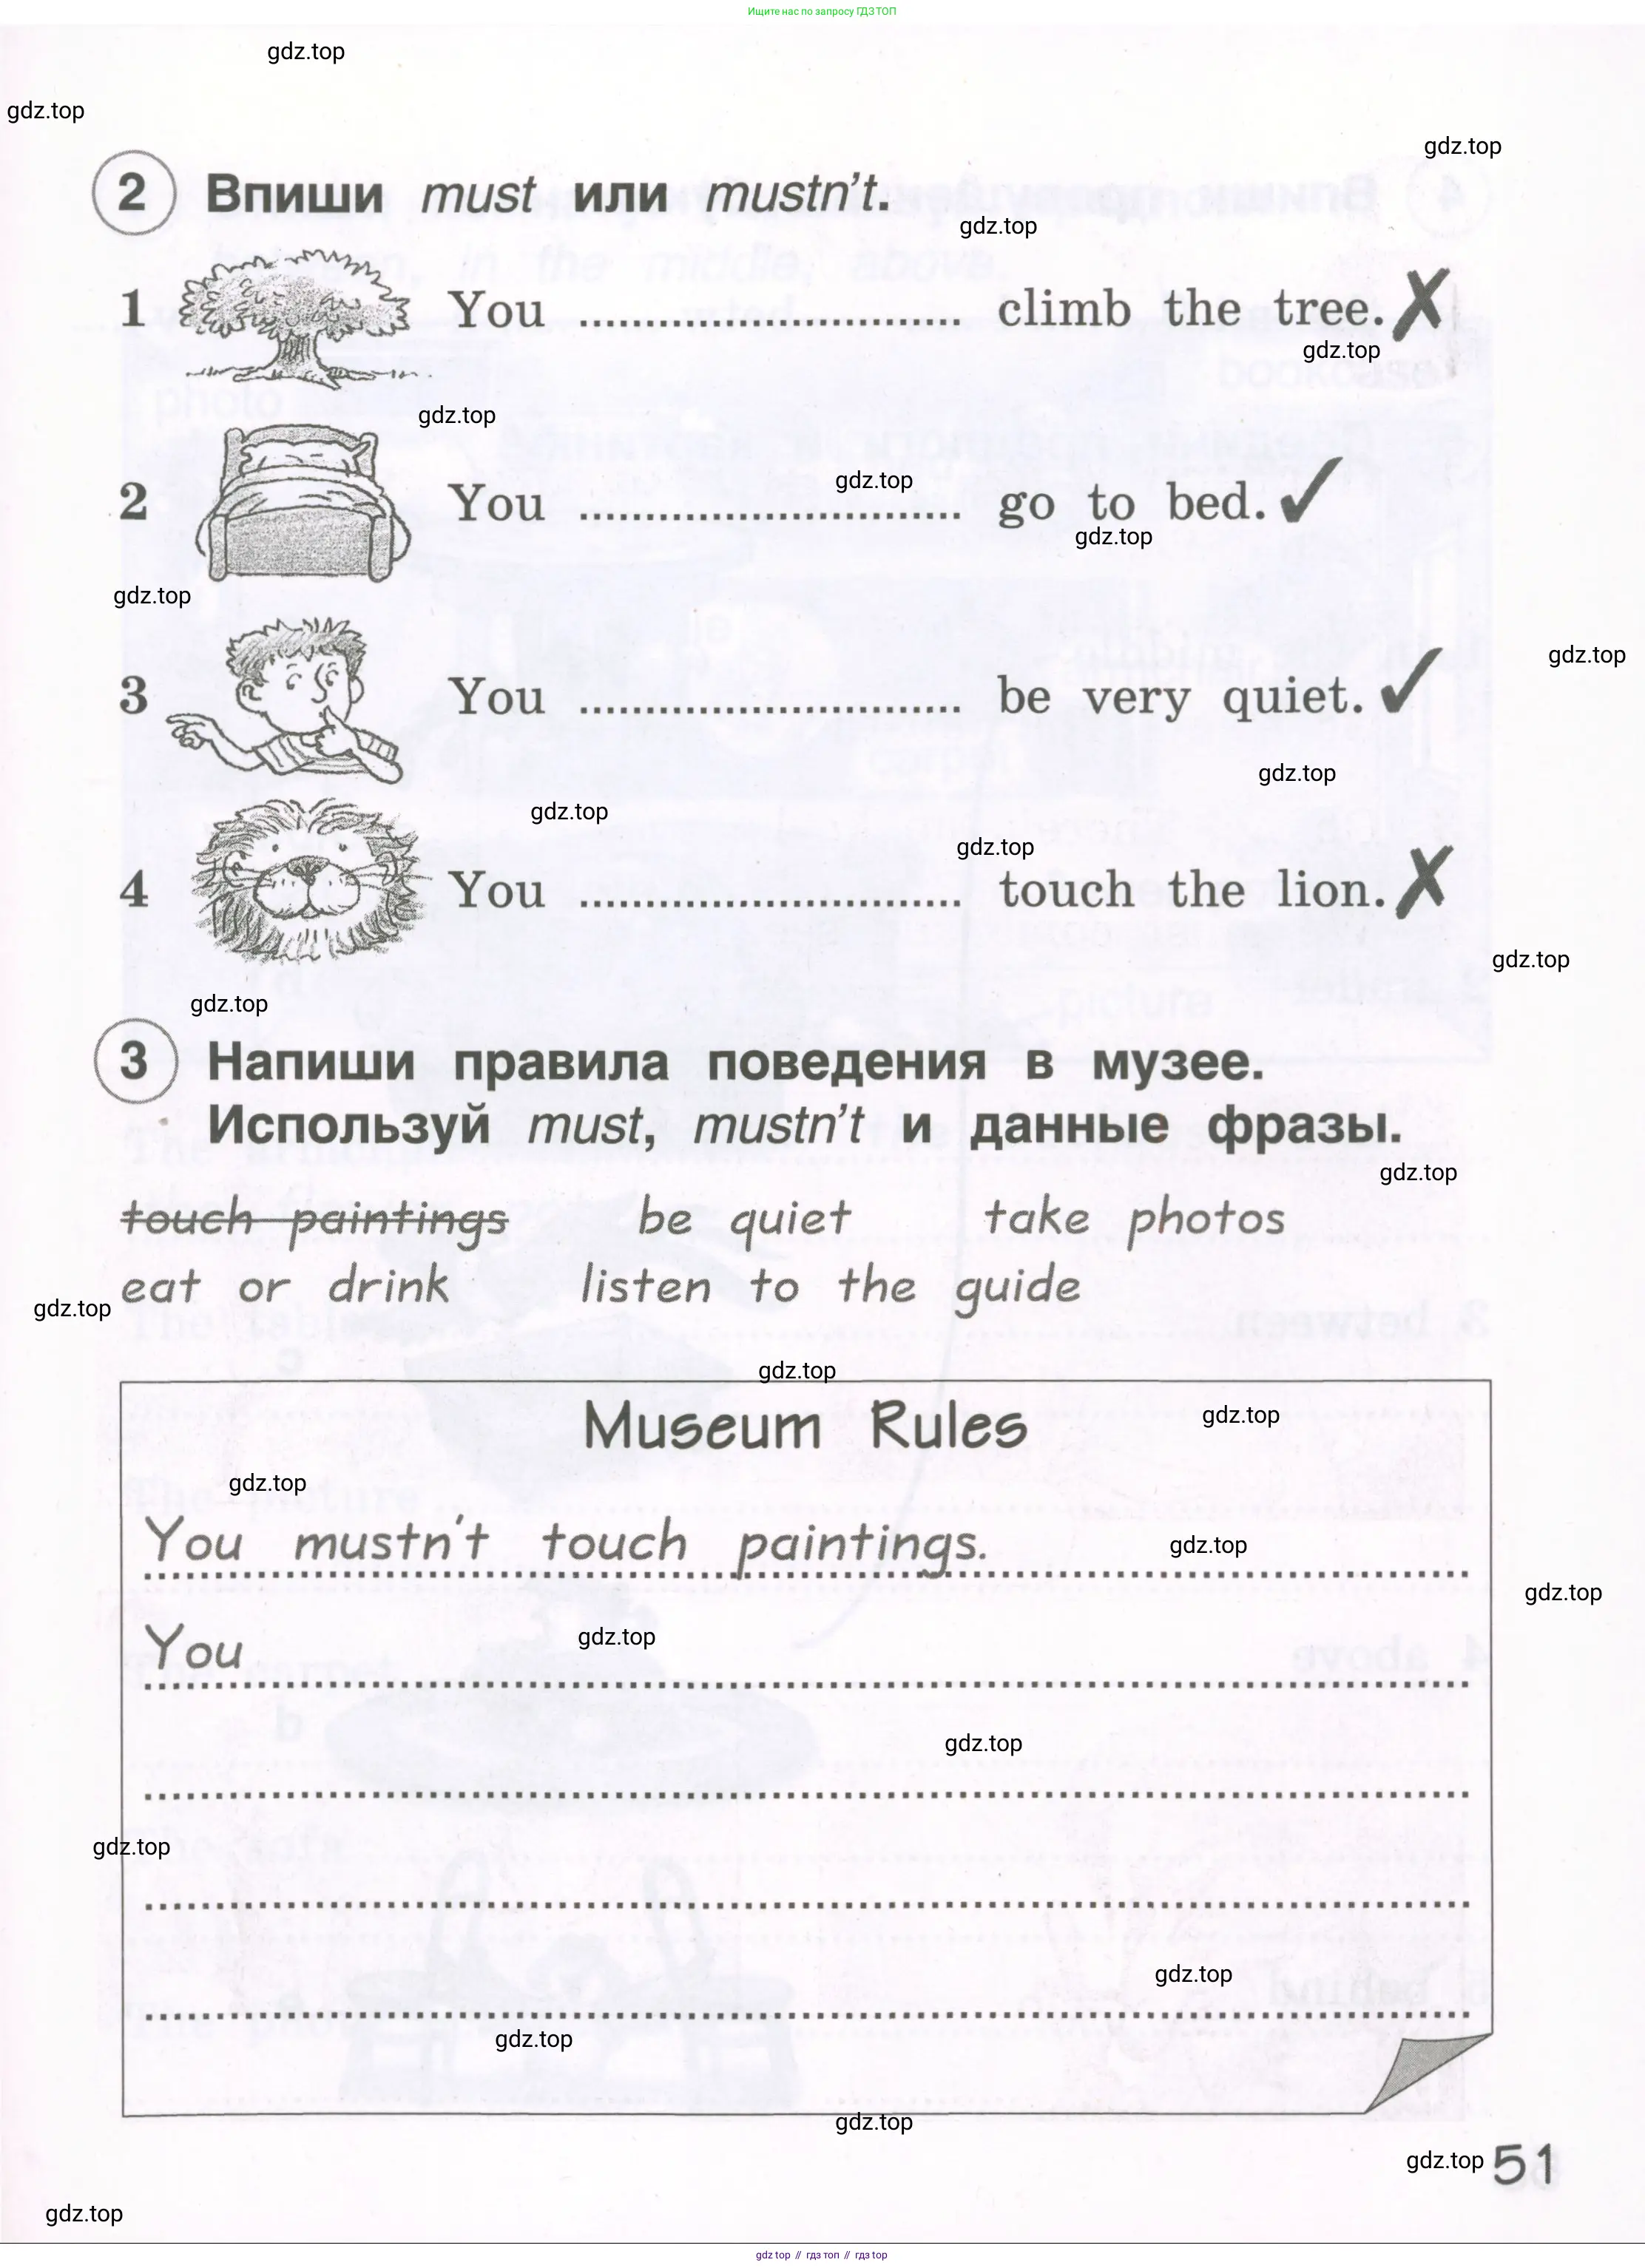 Ищите нас по запросу ГДЗ ТОП
gdz.top
gdz.top
gdz.top
2 Впиши must или mustn't.
gdz.top
1 You ............................. climb the tree. ✗
gdz.top
gdz.top
gdz.top
2 You ............................. go to bed. ✓
gdz.top
gdz.top
gdz.top
3 You ............................. be very quiet. ✓
gdz.top
gdz.top
gdz.top
4 You ............................. touch the lion. ✗
gdz.top
gdz.top
3 Напиши правила поведения в музее.
Используй must, mustn't и данные фразы.
gdz.top
touch paintings be quiet take photos
eat or drink listen to the guide
gdz.top
gdz.top
Museum Rules
gdz.top
gdz.top
You mustn't touch paintings.
gdz.top
gdz.top
You
gdz.top
gdz.top
gdz.top
gdz.top
gdz.top
gdz.top
gdz.top 51
gdz.top
gdz top // гдз топ // гдз top